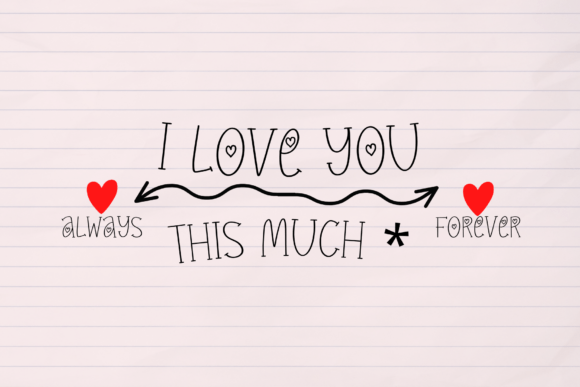 I LOVE YOU
ALWAYS
THIS MUCH *
FOREVER